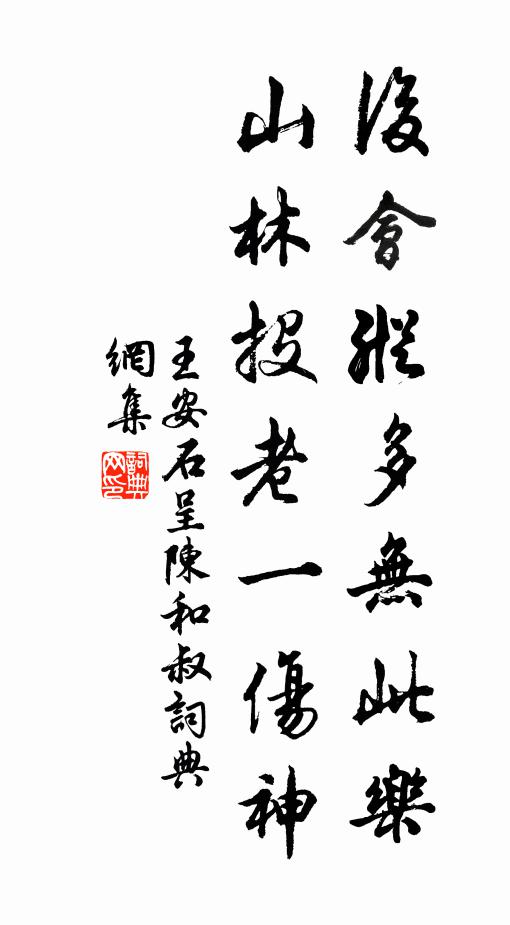 後會縱多無此樂
山林投老一傷神
王安石呈陳和叔詞典
網集
詞典
网印